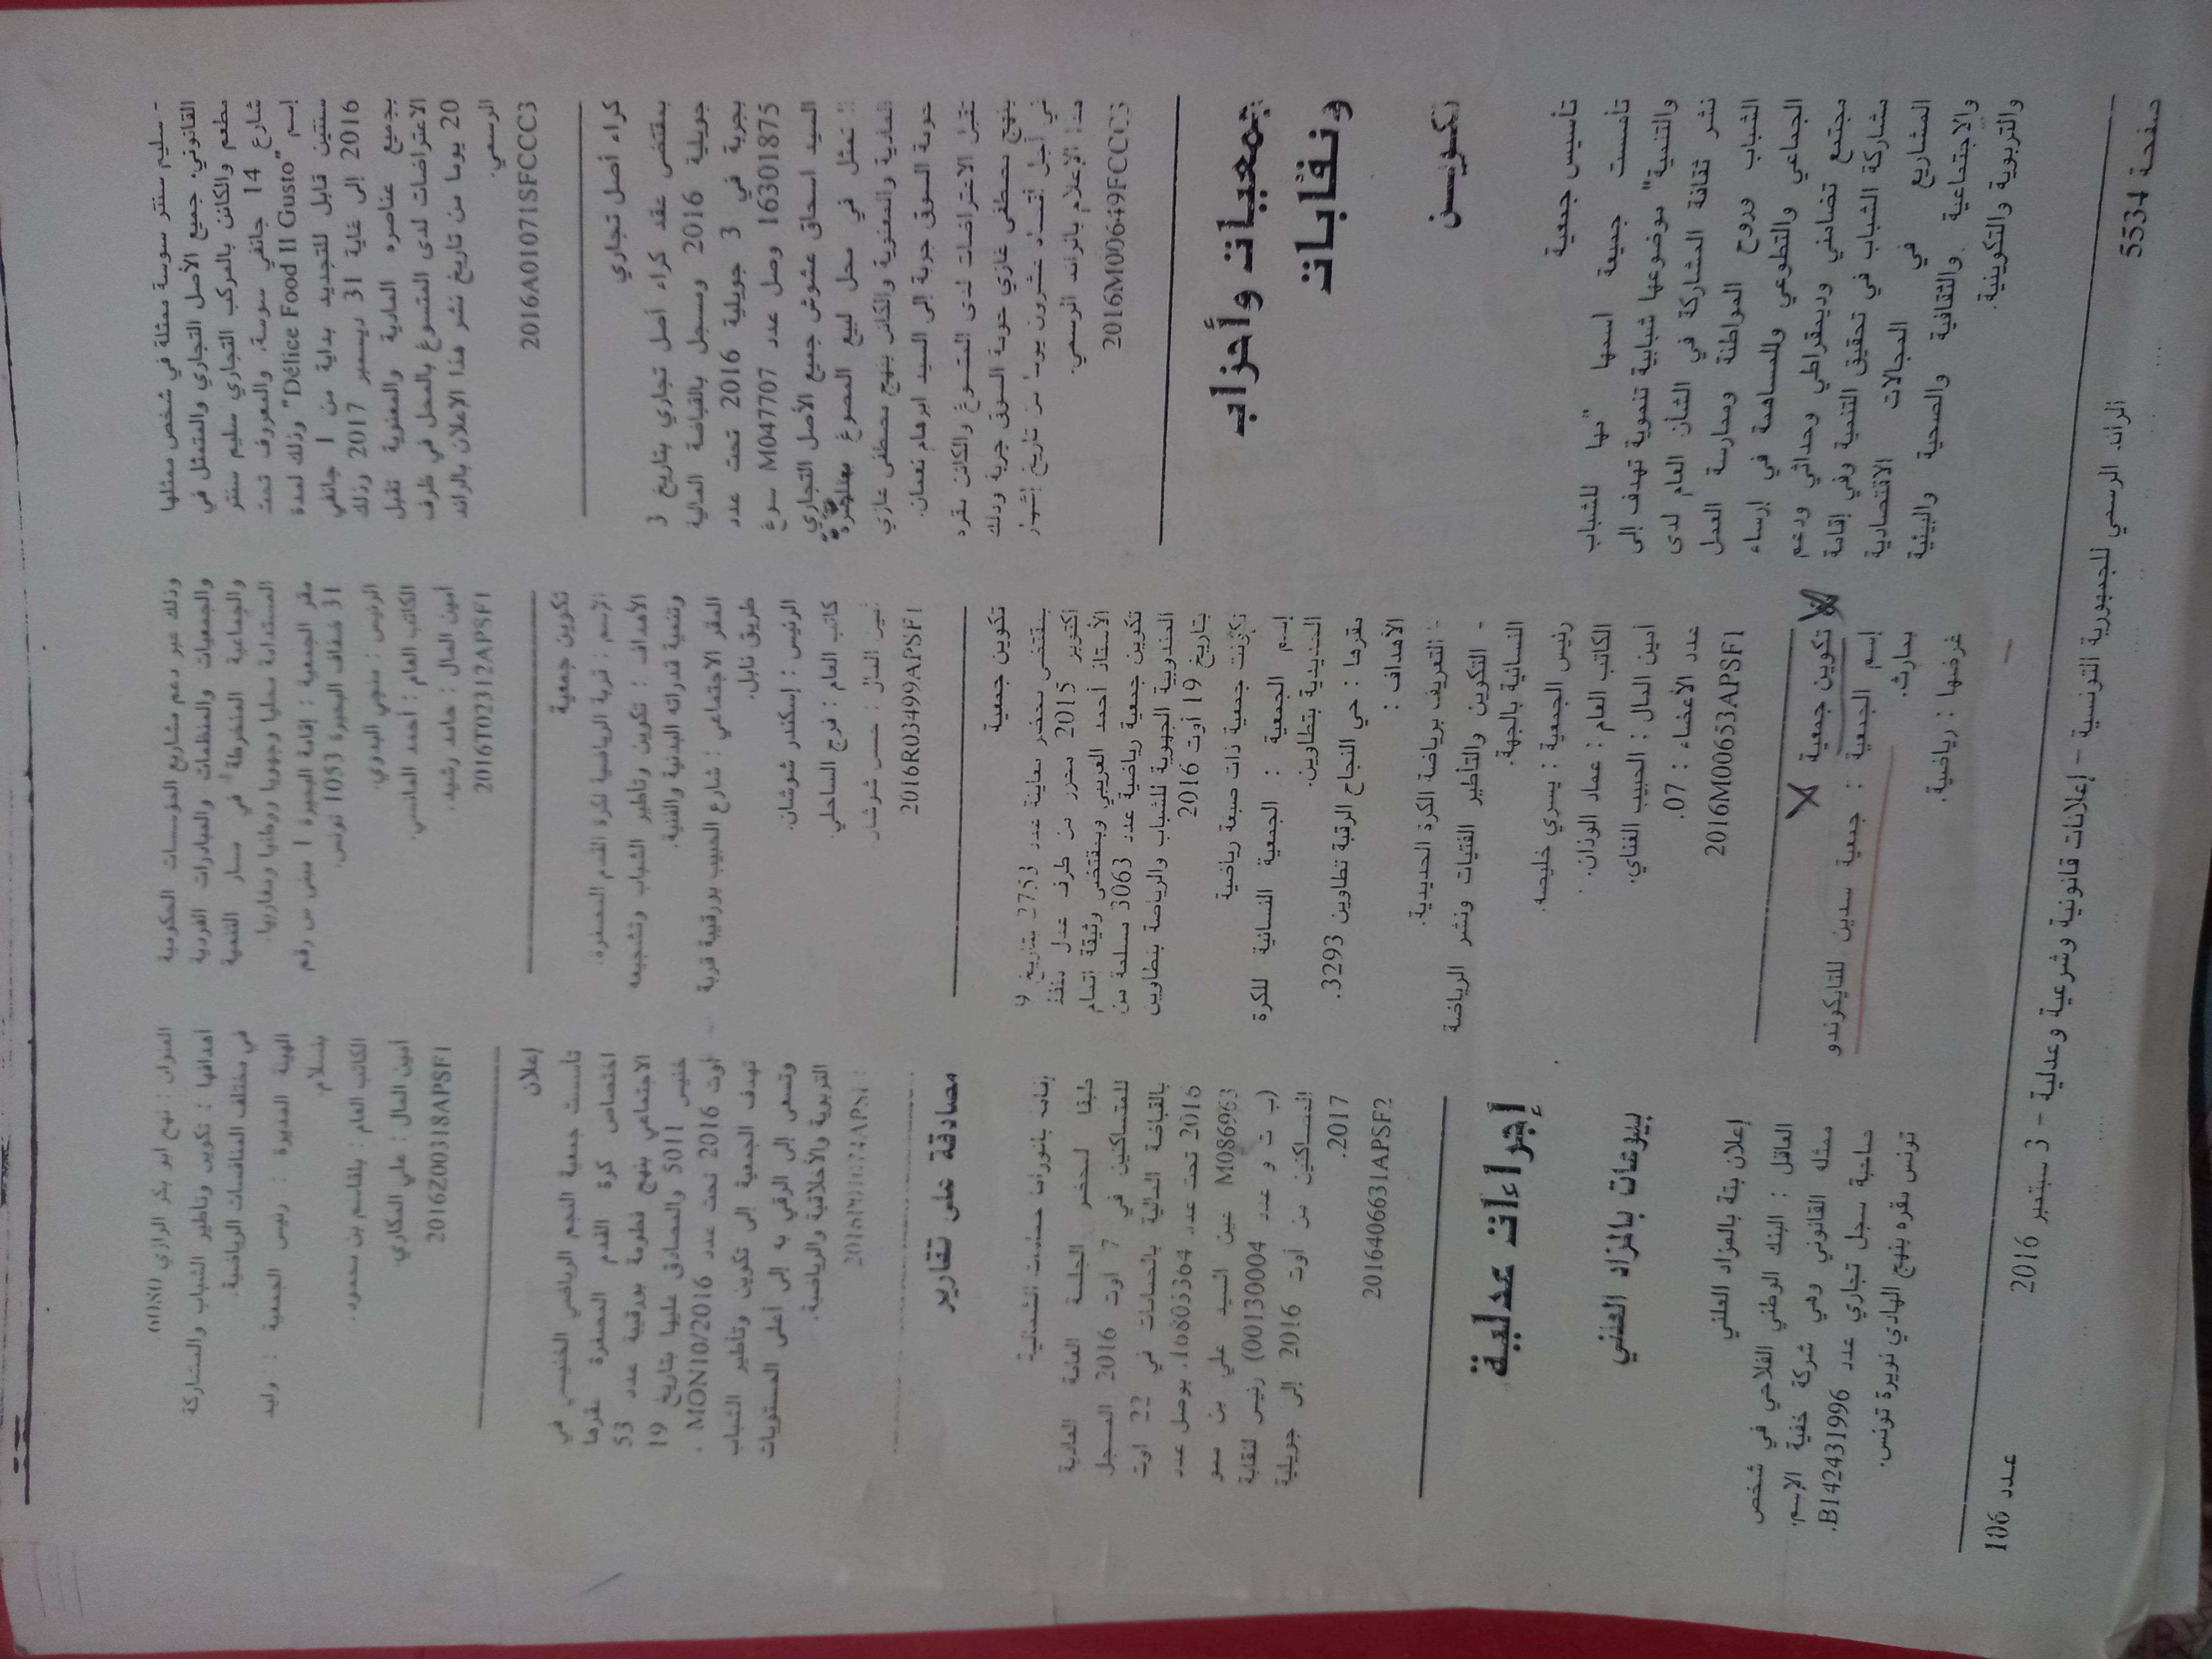 - سليم سنتر سوسة ممثلة في شخص ممثلها
القانوني، جميع الأصل التجاري والمتمثل في
مطعم والكائن بالمركب التجاري سليم سنتر
شارع 14 جانفي سوسة، والمعروف تحت
إسم "Délice Food Il Gusto" وذلك لمدة
سنتين قابل للتجديد بداية من 1 جانفي
2016 إلى غاية 31 ديسمبر 2017 وذلك
بجميع عناصره المادية والمعنوية تقبل
الاعتراضات لدى المتسوغ بالمحل في ظرف
20 يوما من تاريخ نشر هذا الإعلان بالرائد
الرسمي.
2016A01071SFCCC3
كراء أصل تجاري
بمقتضى عقد كراء أصل تجاري بتاريخ 3
جويلية 2016 ومسجل بالقباضة المالية
بجربة في 3 جويلية 2016 تحت عدد
16301875 وصل عدد M047707 سوغ
السيد اسحاق عشوش جميع الأصل التجاري
المتمثل في محل لبيع المصوغ
المادية والمعنوية والكائن بنهج مصطفى غازي
حومة السوق جربة إلى السيد ابرهام نعمان.
تقبل الاعتراضات لدى المتسوغ والكائن مقره
بنهج مصطفى غازي حومة السوق جربة وذلك
في أجل أقصاه عشرون يوما من تاريخ إشهار
هذا الإعلام بالرائد الرسمي.
2016M00649FCCC3
جمعيات وأحزاب
ونقابات
تكويـــن
تأسيس جمعية
تأسست جميعة اسمها "مها للشباب
والتنمية" موضوعها شبابية تنموية تهدف إلى
نشر ثقافة المشاركة في الشأن العام لدى
الشباب وروح المواطنة وممارسة العمل
الجماعي والتطوعي وللمساهمة في إرساء
مجتمع تضامني وديمقراطي وحداثي ودعم
مشاركة الشباب في تحقيق التنمية وفي إقامة
المشاريع في المجالات الاقتصادية
والاجتماعية والثقافية والصحية والبيئية
والتربوية والتكوينية.
وذلك عبر دعم مشاريع المؤسسات الحكومية
والجمعيات والمنظمات والمبادرات الفردية
والجماعية المنخرطة في مسار التنمية
المستدامة محليا وجهويا ووطنيا ومغاربيا.
مقر الجمعية : إقامة البحيرة 1 مبنى س رقم
31 ضفاف البحيرة 1053 تونس.
الرئيس : منجي البدوي.
الكاتب العام : أحمد المانسي.
أمين المال : حامد رشيد.
2016T02312APSF1
تكوين جمعية
الإسم : قربة الرياضية لكرة القدم المصغرة.
الأهداف : تكوين وتأطير الشباب وتشجيعه
وتنمية قدراته البدنية والفنية.
المقر الاجتماعي : شارع الحبيب بورقيبة قربة
طريق نابل.
الرئيس : إسكندر شوشان.
كاتب العام : فرج الساحلي.
أمين المال : حسن شوشان.
2016R03499APSF1
تكوين جمعية
بمقتضى محضر معاينة عدد 2753 بتاريخ 9
أكتوبر 2015 محرر من طرف عدل منفذ
الأستاذ أحمد الغريبي وبمقتضى وثيقة اتمام
تكوين جمعية رياضية عدد 3063 مسلمة من
المندوبية الجهوية للشباب والرياضة بتطاوين
بتاريخ 19 أوت 2016
تكونت جمعية ذات صبغة رياضية
إسم الجمعية : الجمعية النسائية للكرة
الحديدية بتطاوين.
مقرها : حي النجاح الرقبة تطاوين 3293.
الأهداف :
- التعريف برياضة الكرة الحديدية.
- التكوين والتأطير الفتيات ونشر الرياضة
النسائية بالجهة.
رئيس الجمعية : يسري خليصه.
الكاتب العام : عماد الوذان.
أمين المال : الحبيب القناي.
عدد الأعضاء : 07.
2016M00653APSF1
تكوين جمعية
إسم الجمعية : جمعية سدين للتايكوندو
بمارث.
غرضها : رياضية.
العنوان : نهج أبو بكر الرازي (6080).
أهدافها : تكوين وتأطير الشباب والمشاركة
في مختلف المنافسات الرياضية.
الهيئة المديرة : رئيس الجمعية : وليد
بنسلام.
الكاتب العام : بلقاسم بن محمود.
أمين المال : علي المكاري.
2016Z00318APSF1
إعلان
تأسست جمعية النجم الرياضي الخنيسي في
اختصاص كرة القدم المصغرة مقرها
الاجتماعي بنهج فطومة بورقيبة عدد 53
خنيس 5011 والمصادق عليها بتاريخ 19
أوت 2016 تحت عدد MON10/2016 .
تهدف الجمعية إلى تكوين وتأطير الشباب
وتسعى إلى الرقي به إلى أعلى المستويات
التربوية والأخلاقية والرياضية.
مصادقة على تقارير
طبقا لمحضر الجلسة العامة العادية
للمتساكنين في 7 أوت 2016 المسجل
بالقباضة المالية بالحمامات في 22 أوت
2016 تحت عدد 16803364. بوصل عدد
M086963 عين السيد علي بن عمو
(ب ت و عدد 00130004) رئيس لنقابة
المتساكنين من أوت 2016 إلى جويلية
2017.
2016406631APSF2
إجراءات عدلية
بيوعات بالمزاد العلني
إعلان بتة بالمزاد العلني
العاقل : البنك الوطني الفلاحي في شخص
ممثله القانوني وهي شركة خفية الإسم.
صاحبة سجل تجاري عدد B142431996.
تونس مقره بنهج الهادي نويرة تونس.
صفحة 5534
الرائد الرسمي للجمهورية التونسية – إعلانات قانونية وشرعية وعدلية – 3 سبتمبر 2016
عدد 106